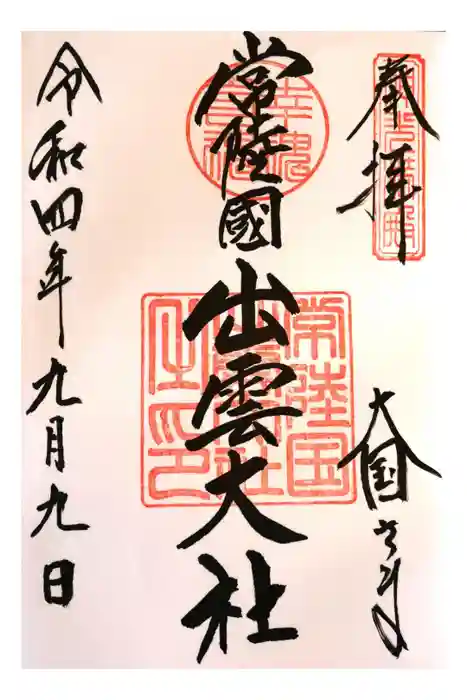 奉拝
大国さま
常陸國出雲大社
常陸国
出雲大社
之印
令和四年九月九日